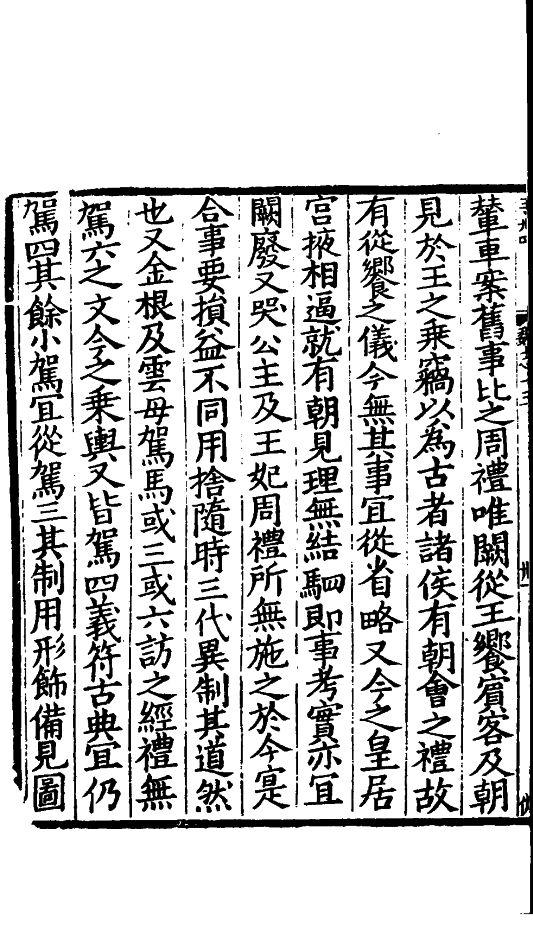 輦車案舊事比之周禮唯闕從王饗賔客及朝
見於王之乗竊以為古者諸侯有朝會之禮故
有從饗之儀今無其事宜從省略又今之皇居
宫掖相逼就有朝見理無結駟即事考實亦宜
闕廢又哭公主及王妃周禮所無施之於今寔
合事要損益不同用捨隨時三代異制其道然
也又金根及雲母駕馬或三或六訪之經禮無
駕六之文今之乗輿又皆駕四義符古典宜仍
駕四其餘小駕宜從駕三其制用形飾備見圖